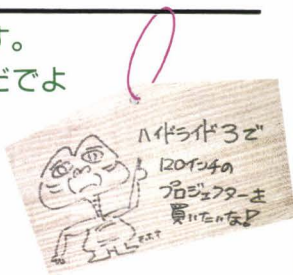 す。
ごでよ
ハイドライド3で
120インチの
プロジェクターを
買いたいな!